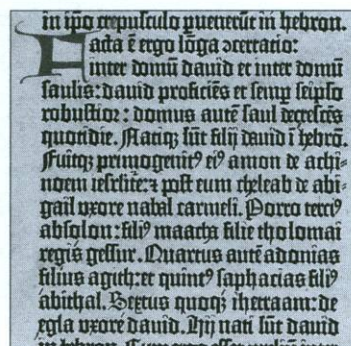 in ip̄o crepusculo puenerūt in hebron.
Facta ē ergo lōga ɔcertatio:
inter domū dauid et inter domū
saulis: dauid proficiēs et semp seipso
robustior: domus autē saul decrescēs
quotidie. Natiqꝫ sūt filij dauid ī hebrō.
Fuitqꝫ primogenitꝰ eiꝰ amon de achi-
noem iesrlite: ⁊ post eum cheleab de abi-
gail vxore nabal carmeli. Porro terciꝰ
absolon: filiꝰ maacha filie tholomai
regis gessur. Quartus autē adonias
filius agith: et quintꝰ saphacias filiꝰ
abithal. Sextus quoqꝫ ihetraam: de
egla vxore dauid. Hij nati sūt dauid
in hebron. Cum ergo esset